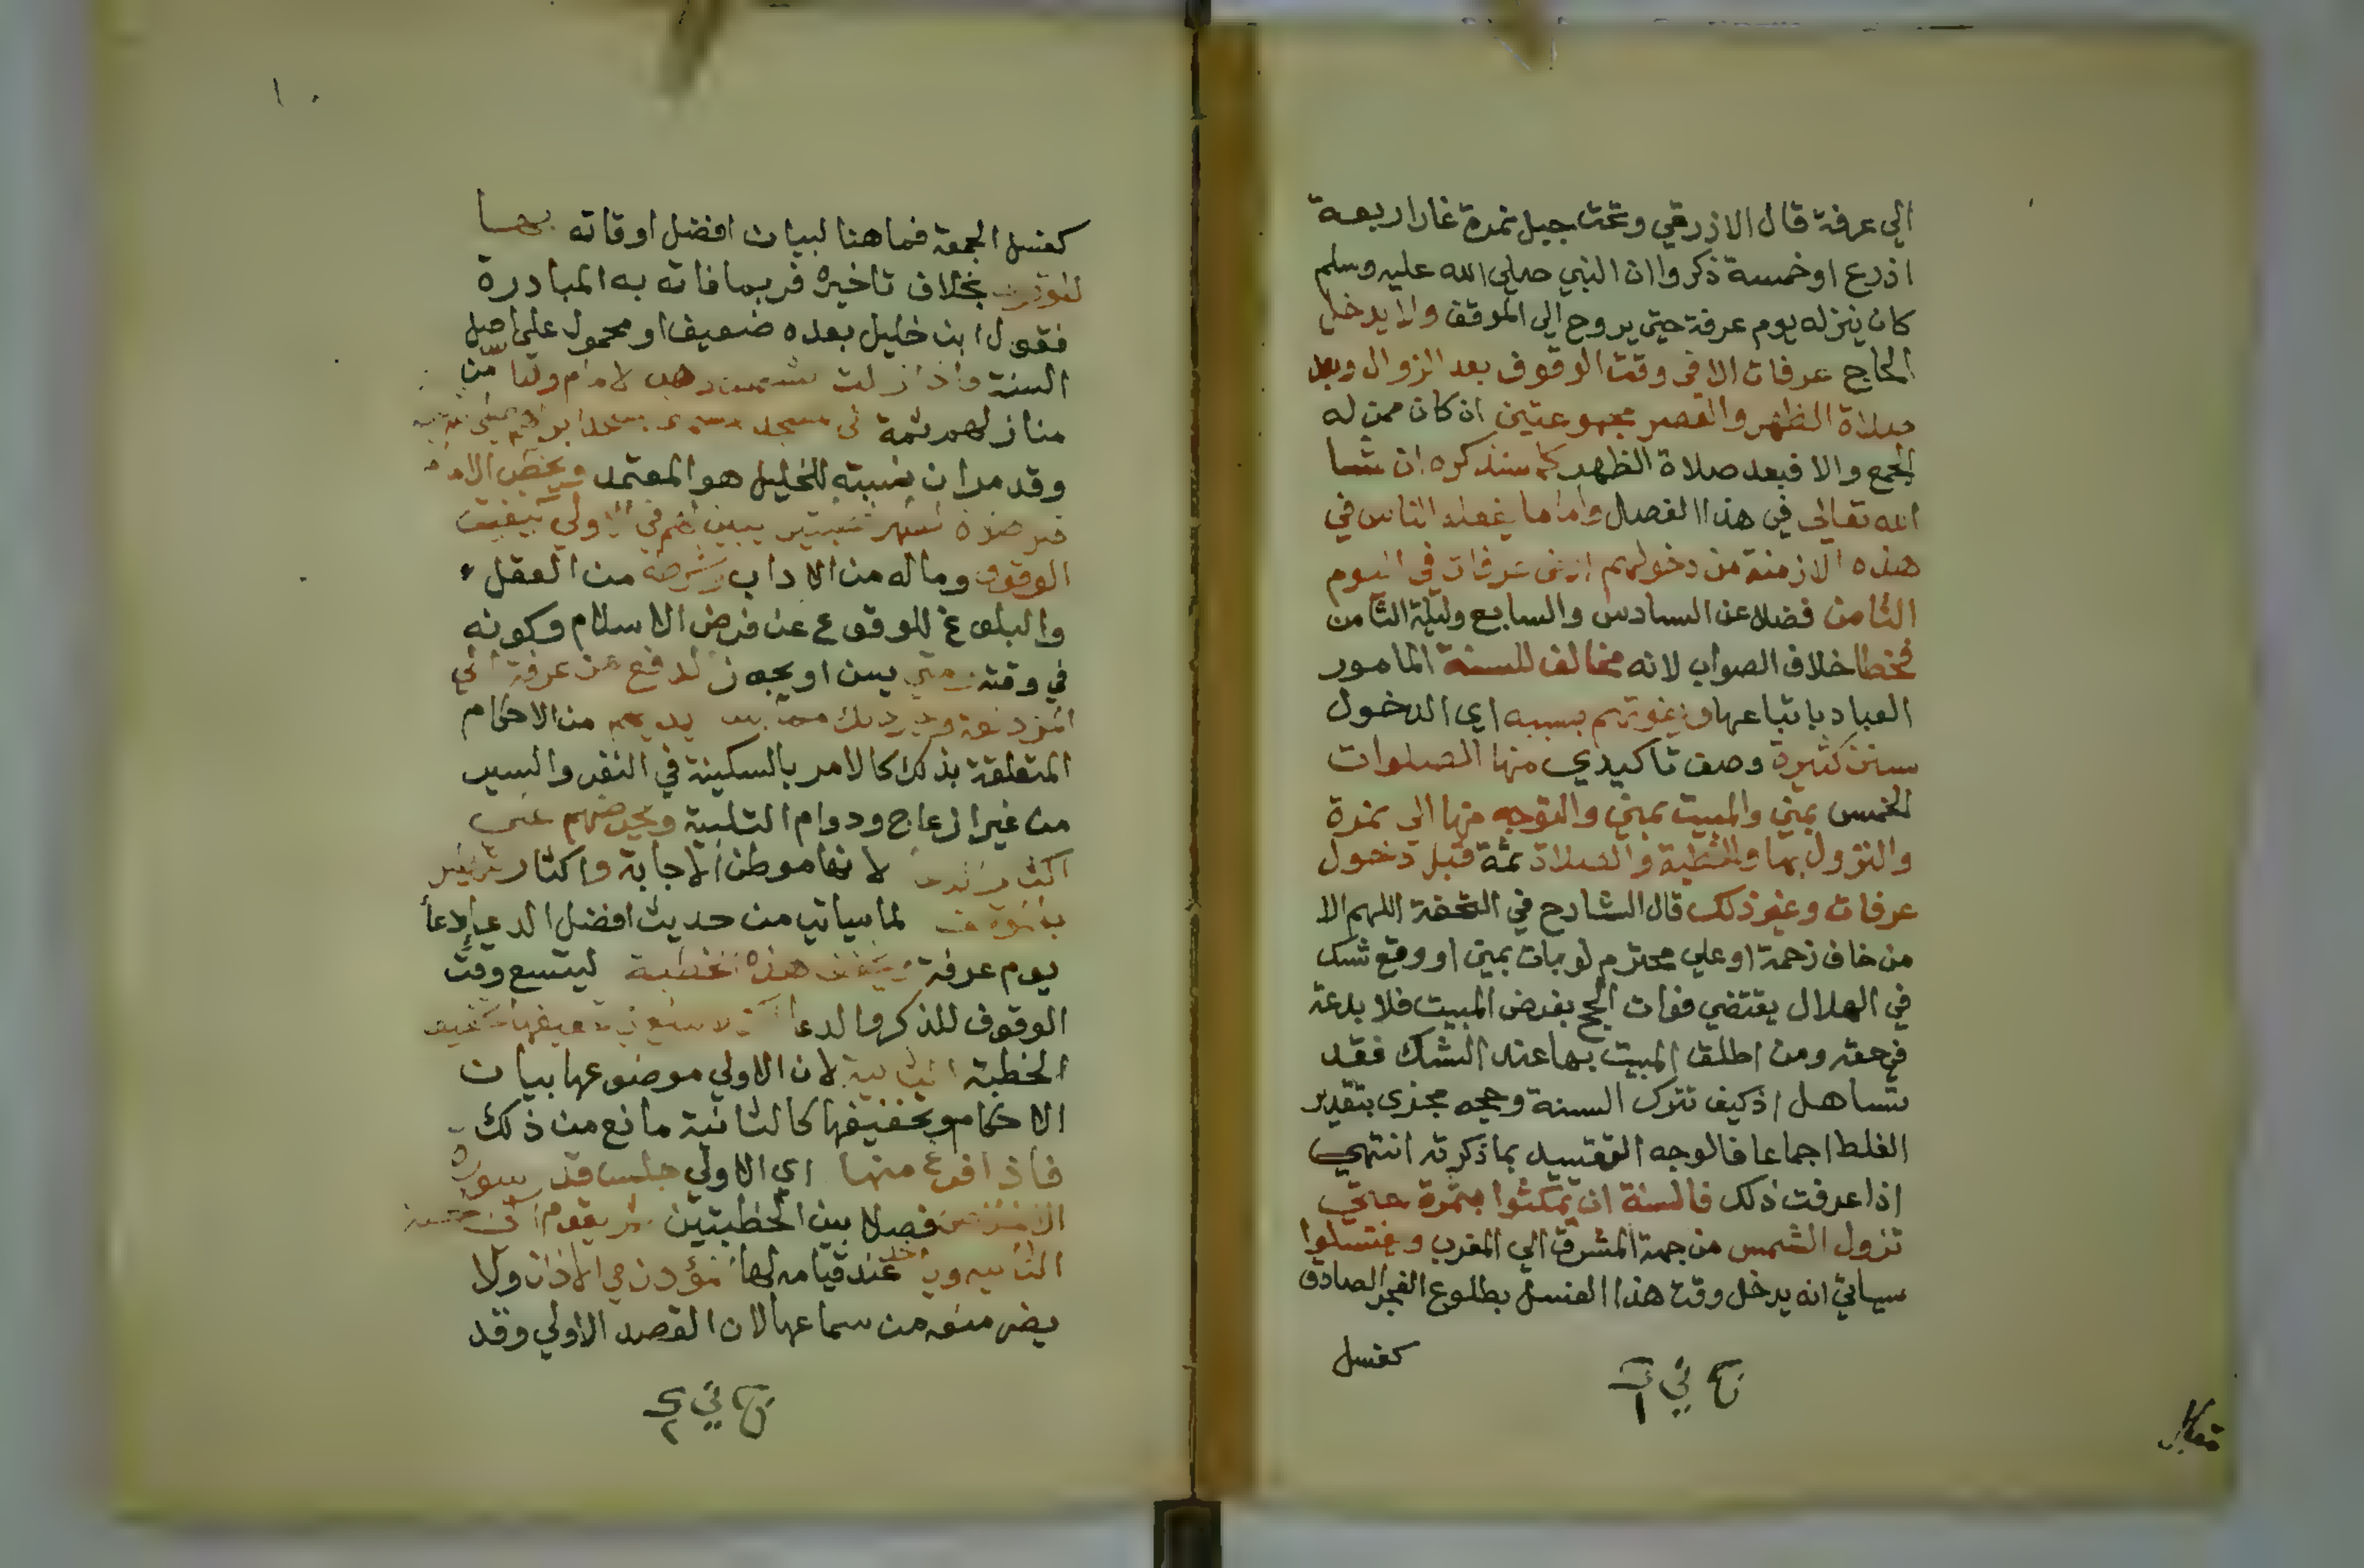 الي عرفة قال الازرقي وتحت جبل نمرة غارا ربعة
اذرع اوخمسة ذكروا ان النبي صلي الله عليه وسلم
كان ينزله يوم عرفة حتي يروح الي الموقف ولا يدخل
الحاج عرفات الا في وقت الوقوف بعد الزوال وبعد
صلاة الظهر والعصر مجموعتين ان كان ممن له
الجمع والا فبعد صلاة الظهر كما سنذكره ان شا
الله تعالي في هذا الفصل واما ما يفعله الناس في
هذه الازمنة من دخولهم ارض عرفات في اليوم
الثامن فضلا عن السادس والسابع وليلة الثامن
فخطا خلاف الصواب لانه مخالف للسنة المامور
العباد باتباعها ويفوتهم بسببه اي الدخول
سنن كثيرة وصف تاكيدي منها الصلوات
الخمس بمني والمبيت بمني والتوجه منها الي نمرة
والنزول بها والخطبة والصلاة ثمة قبل دخول
عرفات وغير ذلك قال الشارح في التحفة اللهم الا
من خاف زحمة او علي محترم لو بات بمني او وقع شك
في الهلال يقتضي فوات الحج بفرض المبيت فلا بدعة
في حقه ومن اطلق المبيت بها عند الشك فقد
تساهل اذ كيف تترك السنة وحجه مجزي بتقدير
الغلط اجماعا فالوجه التقييد بما ذكرته انتهي
اذا عرفت ذلك فالسنة ان يمكثوا بنمرة حتي
تزول الشمس من جهة المشرق الي المغرب ويغتسلوا
سياتي انه يدخل وقت هذا الغسل بطلوع الفجر الصادق
كغسل
كغسل الجمعة فما هنا لبيان افضل اوقاته بها
للوقوف بخلاف تاخيره فربما فاته به المبادرة
فقول ابن خليل بعده ضعيف او محمول علي اصل
السنة فاذا زالت الشمس ذهب الامام والناس من
منازلهم ثمة الي مسجد
وقد مر ان نسبته للخليل هو المعتمد ويخطب الامام
قبل صلاة الظهر خطبتين يبين لهم في الاولي كيفية
الوقوف وما له من الاداب وشرطه من العقل
والبلوغ للوقوع عن فرض الاسلام وكونه
في وقته ومتي يسن او يجوز الدفع من عرفة الي
المزدلفة وغير ذلك مما بين يديهم من الاحكام
المتعلقة بذلك كالامر بالسكينة في النفر والسير
من غير ازعاج ودوام التلبية ويحرضهم علي
اكثار الدعا لانها موطن الاجابة واكثار التهليل
بالموقف لما سياتي من حديث افضل الدعا دعا
يوم عرفة ويخفف هذه الخطبة ليتسع وقت
الوقوف للذكر والدعا
الخطبة الثانية لان الاولي موضوعها بيان
الاحكام وتخفيفها كالثانية مانع من ذلك
فاذا فرغ منها اي الاولي جلس قدر سورة
الاخلاص فصلا بين الخطبتين ثم يقوم الي الخطبة
الثانية وياخذ عند قيامه لها المؤذن في الاذان ولا
يضر منعه من سماعها لان القصد الاولي وقد